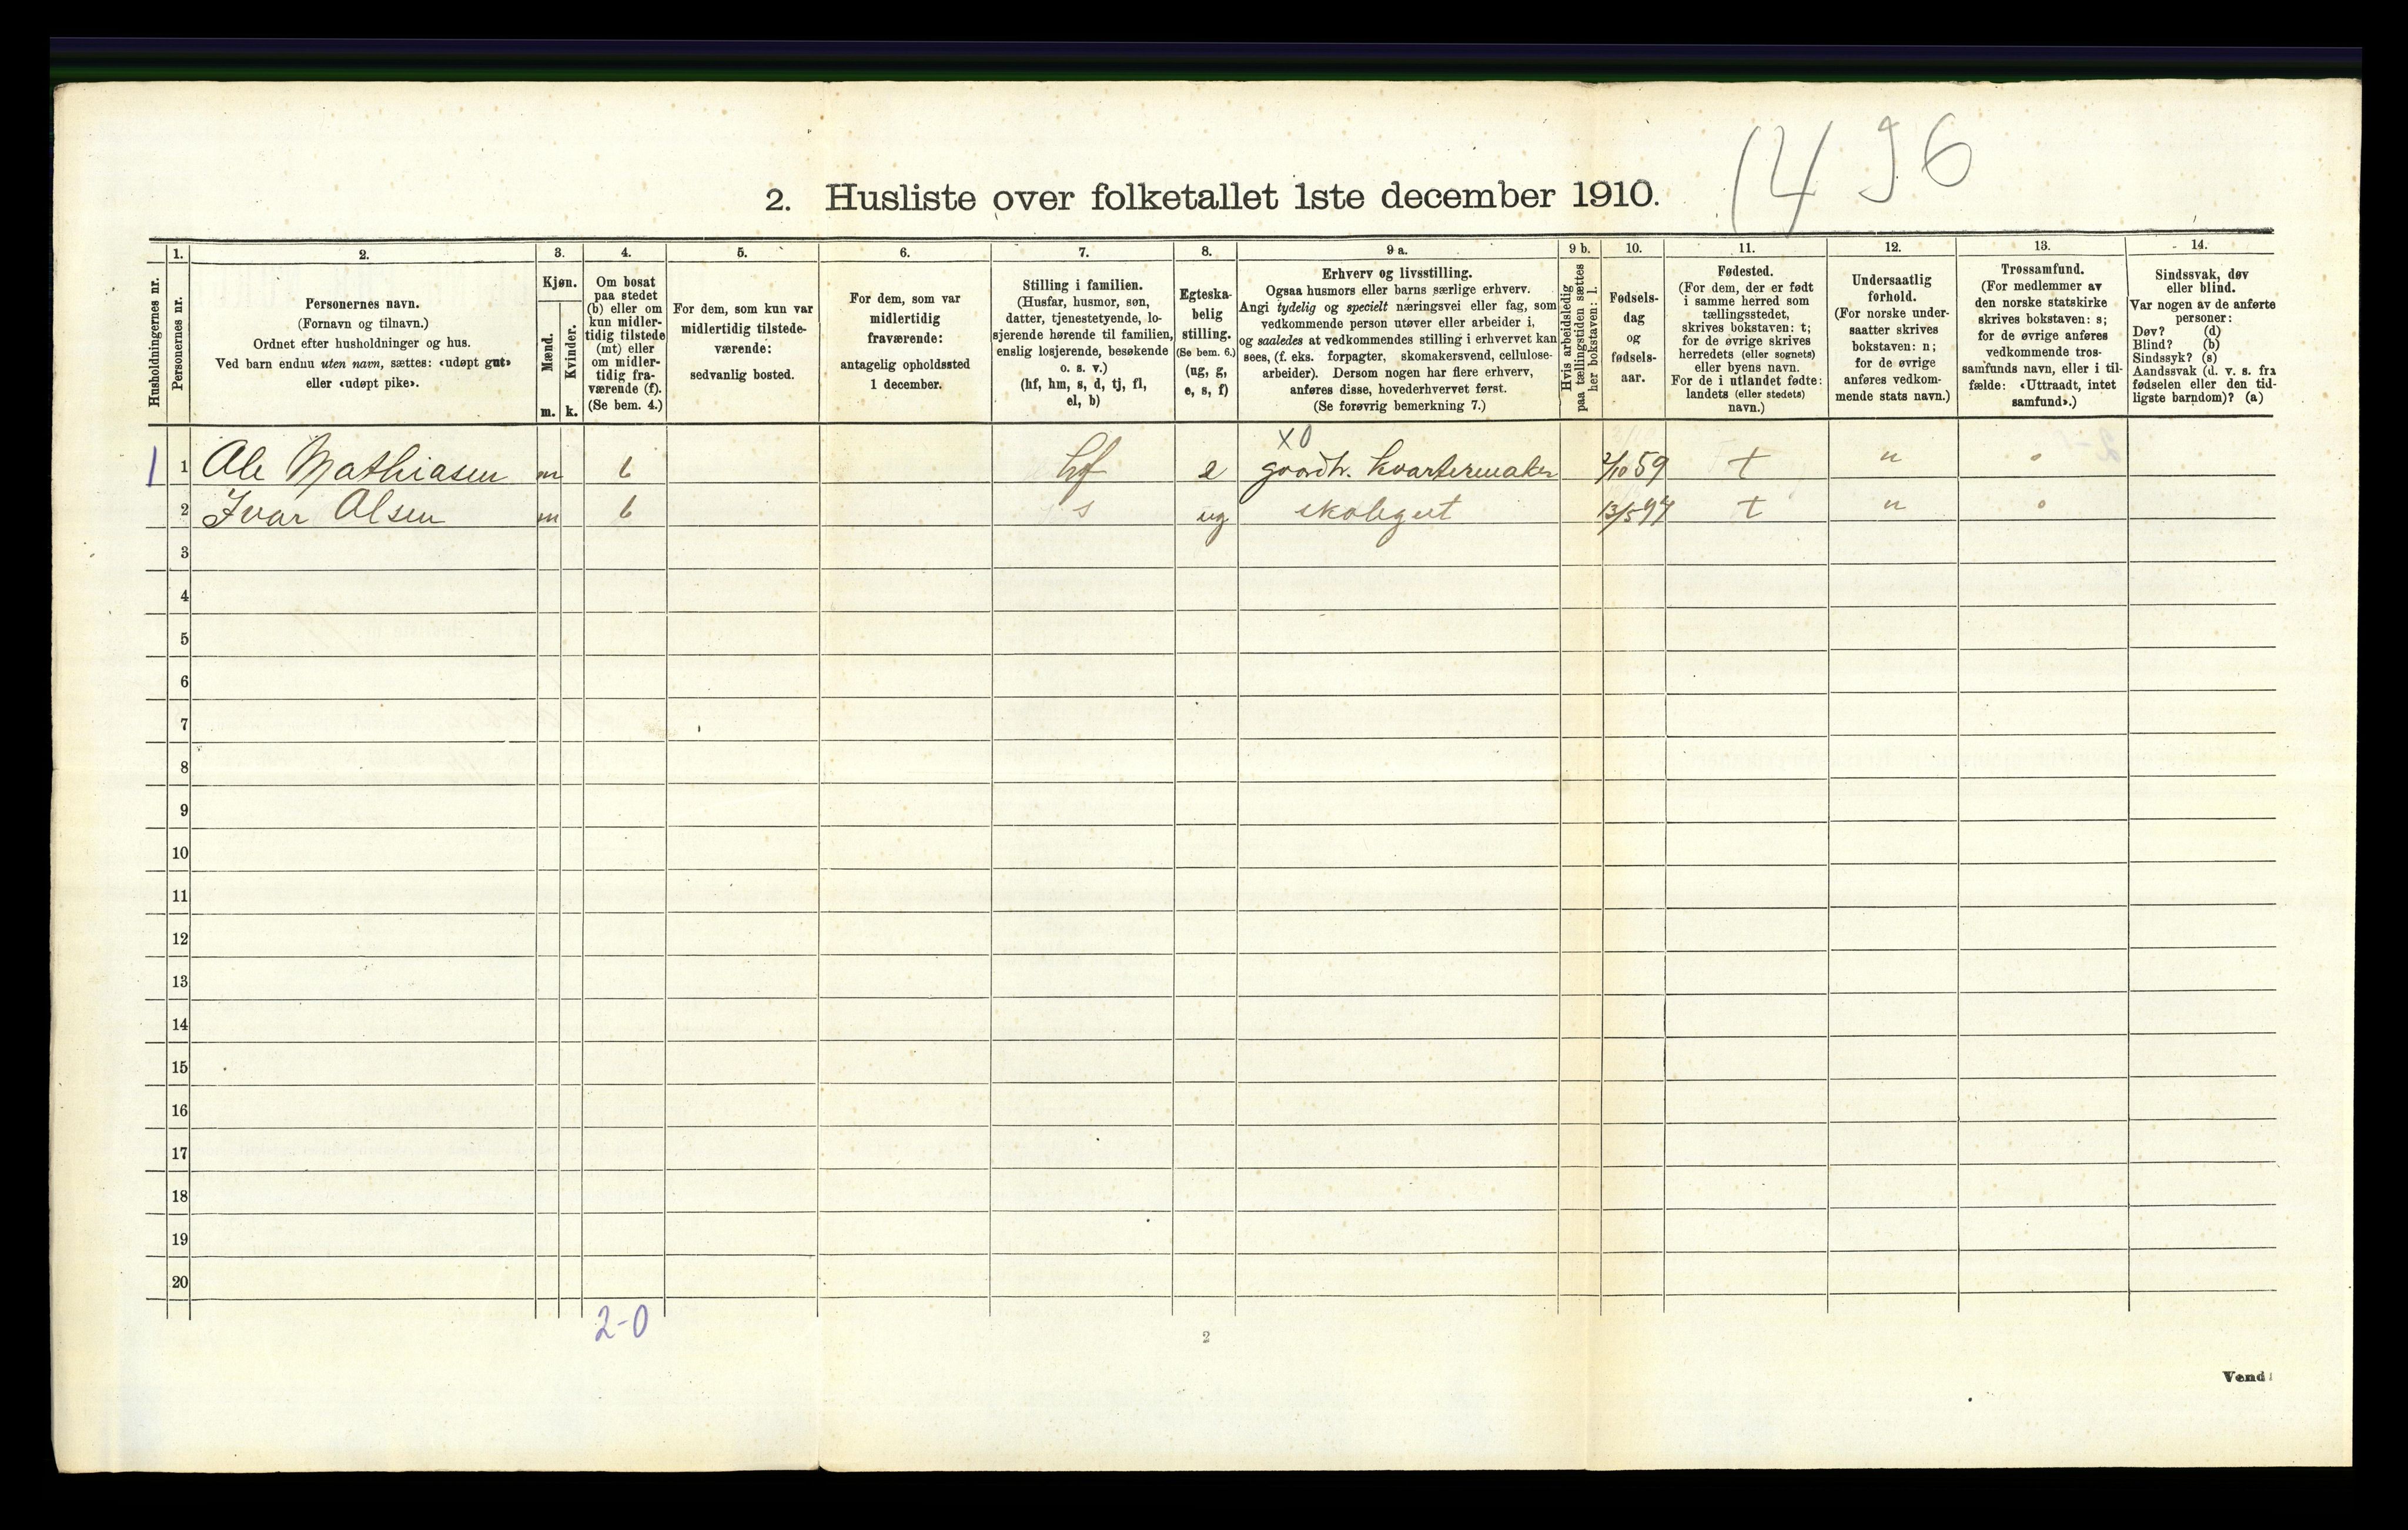 1496
2. Husliste over folketallet 1ste december 1910.
Husholdningernes nr.
1.
Personernes nr.
2.
Personernes navn.
(Fornavn og tilnavn.)
Ordnet efter husholdninger og hus.
Ved barn endnu uten navn, sættes: «udøpt gut»
eller «udøpt pike».
3.
Kjøn.
Mænd.
Kvinder.
m. k.
4.
Om bosat
paa stedet
(b) eller om
kun midler-
tidig tilstede
(mt) eller
om midler-
tidig fra-
værende (f).
(Se bem. 4.)
5.
For dem, som kun var
midlertidig tilstede-
værende:
sedvanlig bosted.
6.
For dem, som var
midlertidig
fraværende:
antagelig opholdssted
1 december.
7.
Stilling i familien.
(Husfar, husmor, søn,
datter, tjenestetyende, lo-
sjerende hørende til familien,
enslig losjerende, besøkende
o. s. v.)
(hf, hm, s, d, tj, fl,
el, b)
8.
Egteska-
belig
stilling.
(Se bem. 6.)
(ug, g,
e, s, f)
9 a.
Erhverv og livsstilling.
Ogsaa husmors eller barns særlige erhverv.
Angi tydelig og specielt næringsvei eller fag, som
vedkommende person utøver eller arbeider i,
og saaledes at vedkommendes stilling i erhvervet kan
sees, (f. eks. forpagter, skomakersvend, cellulose-
arbeider). Dersom nogen har flere erhverv,
anføres disse, hovederhvervet først.
(Se forøvrig bemerkning 7.)
9 b.
Hvis arbeidsledig
paa tællingstiden sættes
her bokstaven: l.
10.
Fødsels-
dag
og
fødsels-
aar.
11.
Fødested.
(For dem, der er født
i samme herred som
tællingsstedet,
skrives bokstaven: t;
for de øvrige skrives
herredets (eller sognets)
eller byens navn.
For de i utlandet fødte:
landets (eller stedets)
navn.)
12.
Undersaatlig
forhold.
(For norske under-
saatter skrives
bokstaven: n;
for de øvrige
anføres vedkom-
mende stats navn.)
13.
Trossamfund.
(For medlemmer av
den norske statskirke
skrives bokstaven: s;
for de øvrige anføres
vedkommende tros-
samfunds navn, eller i til-
fælde: «Uttraadt, intet
samfund».)
14.
Sindssvak, døv
eller blind.
Var nogen av de anførte
personer:
Døv? (d)
Blind? (b)
Sindssyk? (s)
Aandssvak (d. v. s. fra
fødselen eller den tid-
ligste barndom)? (a)
X0
1 1 Ole Mathiasen m b hf e gaardbr. kvartermaker 2/10 59 t n
2 Ivar Olsen m b s ug skolegut 13/5 97 t n
3
4
5
6
7
8
9
10
11
12
13
14
15
16
17
18
19
20
2-0
2
Vend!